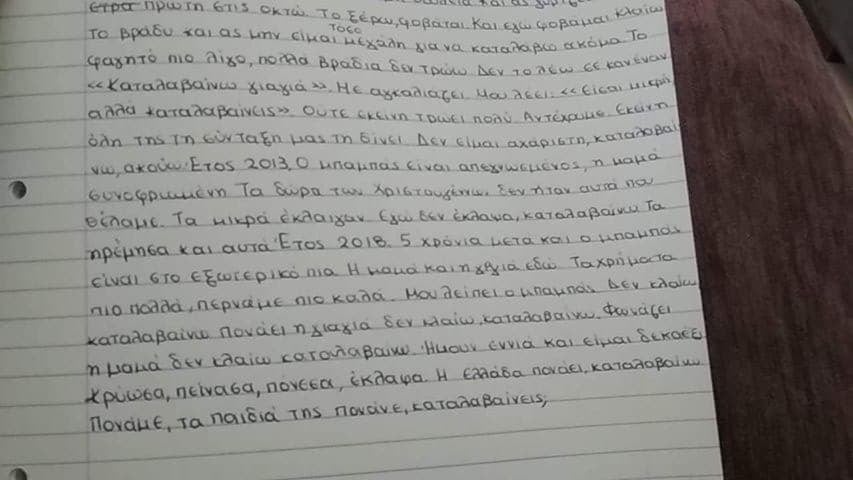 πρώτη στις οκτώ. Το ξέρω, φοβάται. Και εγώ φοβάμαι κλαίω
το βράδυ και ας μην είμαι τόσο μεγάλη για να καταλάβω ακόμα. Το
φαγητό πιο λίγο, πολλά βράδια δεν τρώω. Δεν το λέω σε κανέναν
«Καταλαβαίνω γιαγιά». Με αγκαλιάζει. Μου λέει: «Είσαι μικρή
αλλά καταλαβαίνεις». Ούτε εκείνη τρώει πολύ. Αντέχαμε. Εκείνη
όλη της τη σύνταξη μας τη δίνει. Δεν είμαι αχάριστη, καταλαβαί
νω, ακούω. Έτος 2013. Ο μπαμπάς είναι απεγνωσμένος, η μαμά
συνοφριωμένη. Τα δώρα των Χριστουγέννων δεν ήταν αυτά που
θέλαμε. Τα μικρά έκλαιγαν. Εγώ δεν έκλαψα, καταλαβαίνω. Τα
ηρέμησα και αυτά. Έτος 2018. 5 χρόνια μετά και ο μπαμπάς
είναι στο εξωτερικό πια. Η μαμά και η γιαγιά εδώ. Τα χρήματα
πιο πολλά, περνάμε πιο καλά. Μου λείπει ο μπαμπάς. Δεν κλαίω
καταλαβαίνω. Πονάει η γιαγιά δεν κλαίω, καταλαβαίνω. Φωνάζει
η μαμά δεν κλαίω καταλαβαίνω. Ήμουν εννιά και είμαι δεκαέξι
Κρύωσα, πείνασα, πόνεσα, έκλαψα. Η Ελλάδα πονάει, καταλαβαίνω
Πονάμε, τα παιδιά της πονάνε, καταλαβαίνεις;